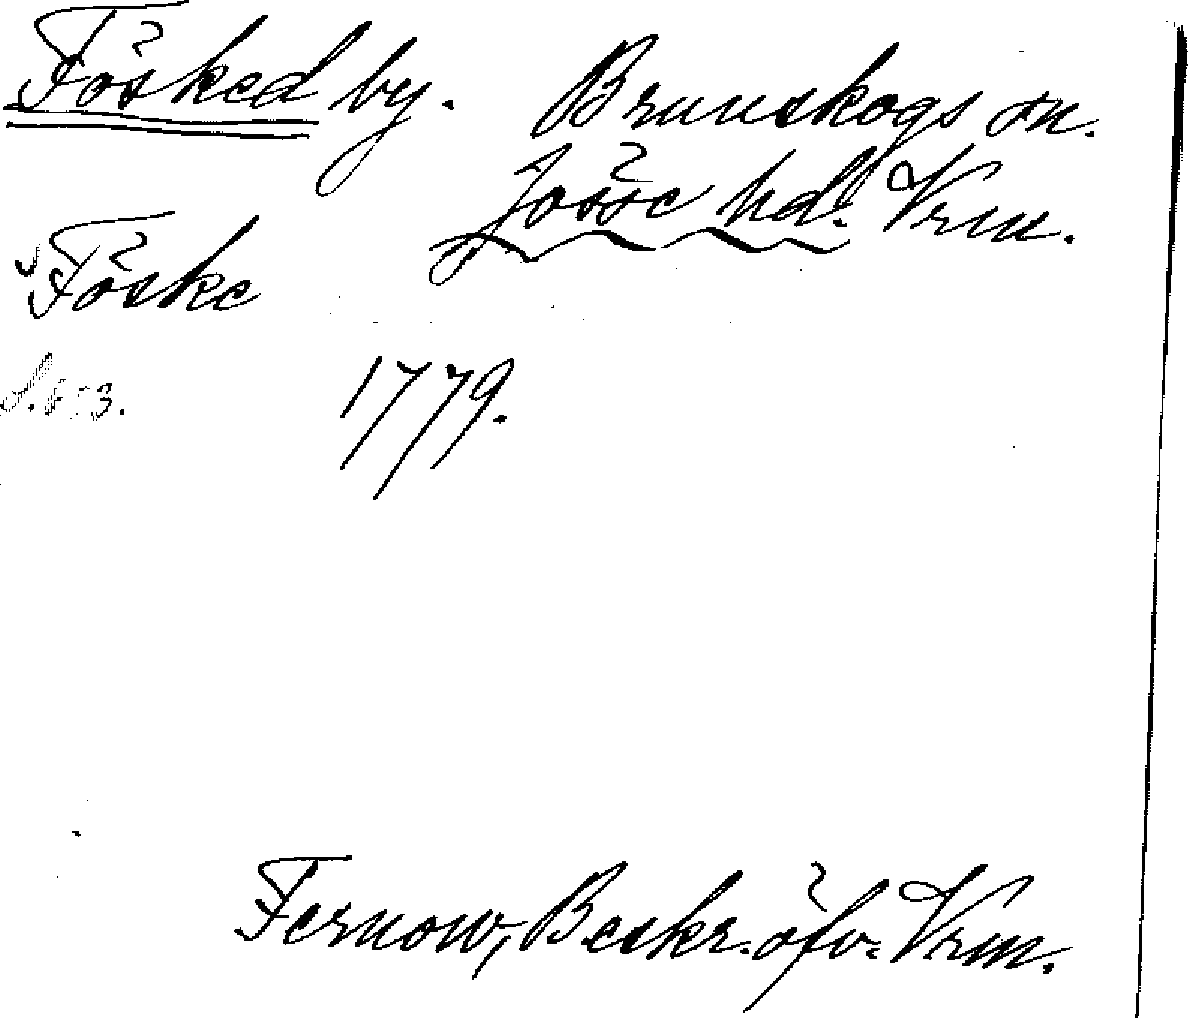 Fösked by. Brunskogs sn.
Jösse hd. Vrm.
Föske
1779.
Fernow, Beskr. öfv. Vrm.